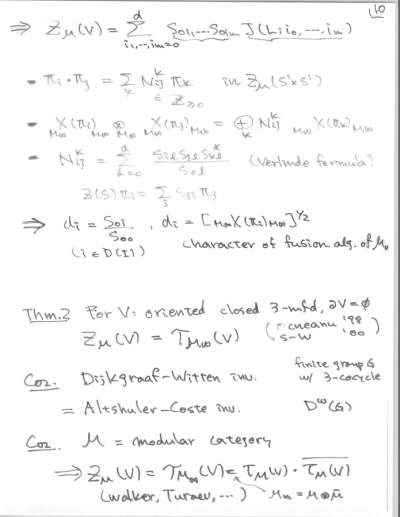 10
⇒ Z_M(V) = Σ_{i1,…,im=0}^{d} S_{0i1}…S_{0im} J(L; i1, …, im)
• π_i · π_j = Σ_k N_{ij}^k π_k in Z_M(S¹×S¹)
∈ Z_{≥0}
• M∞ X(π_i) M∞ ⊗_{M∞} X(π_j) M∞ = ⊕_k N_{ij}^k M∞ X(π_k) M∞
• N_{ij}^k = Σ_{l=0}^{d} S_{il} S_{jl} S_{kl}^* / S_{0l} (Verlinde formula)
Z(S) π_i = Σ_j S_{ji} π_j
⇒ d_i = S_{0i} / S_{00}, d_i = [M∞ X(π_i) M∞]^{1/2}
(i ∈ D(I)) character of fusion alg. of M∞
Thm. 2 For V: oriented closed 3-mfd, ∂V = φ
Z_M(V) = T_{M∞}(V) (Ocneanu '98 S-W '00)
Cor. Dijkgraaf-Witten inv. finite group G w/ 3-cocycle
= Altshuler-Coste inv. D^ω(G)
Cor. M = modular category
⇒ Z_M(V) = T_{M∞}(V) = T_M(V) · \overline{T_M(V)}
(Walker, Turaev, …) M∞ = M ⊗ M̄